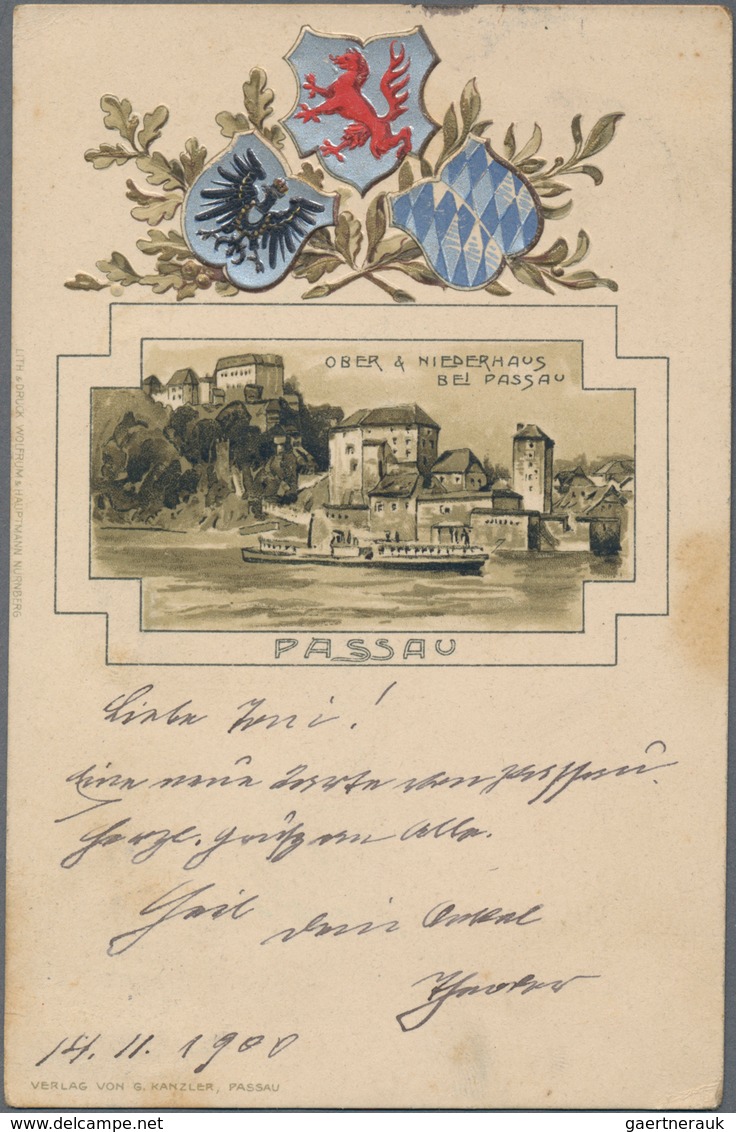 OBER & NIEDERHAUS
BEI PASSAU
PASSAU
LITH & DRUCK WOLFRUM & HAUPTMANN NÜRNBERG
Liebe Toni!
Eine neue Karte von Passau.
Herzl. Grüße an Alle.
Heil dein Onkel
Theodor
14. 11. 1900
VERLAG VON G. KANZLER, PASSAU
gaertnerauk